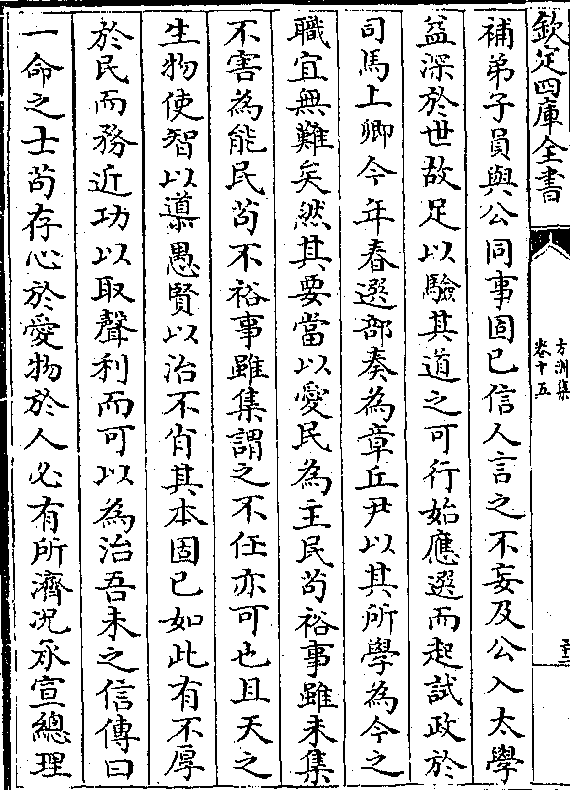 欽定四庫全書
方洲集
卷十五
補弟子員與公同事固已信人言之不妄及公入太學
益深於世故足以驗其道之可行始應選而起試政於
司馬上卿今年春選部奏為章丘尹以其所學為今之
職宜無難矣然其要當以愛民為主民茍裕事雖未集
不害為能民茍不裕事雖集謂之不任亦可也且天之
生物使智以導愚賢以治不肖其本固已如此有不厚
於民而務近功以取聲利而可以為治吾未之信傳曰
一命之士茍存心於愛物於人必有所濟况承宣總理